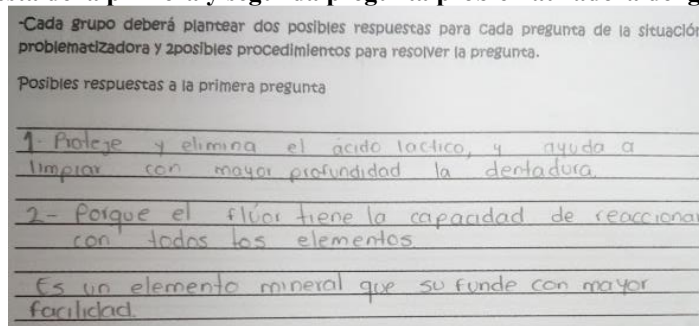 -Cada grupo deberá plantear dos posibles respuestas para cada pregunta de la situación
problematizadora y 2posibles procedimientos para resolver la pregunta.
Posibles respuestas a la primera pregunta
1- Proteje y elimina el ácido lactico, y ayuda a
limpiar con mayor profundidad la dentadura.
2- Porque el flúor tiene la capacidad de reaccionar
con todos los elementos
Es un elemento mineral que su funde con mayor
facilidad.